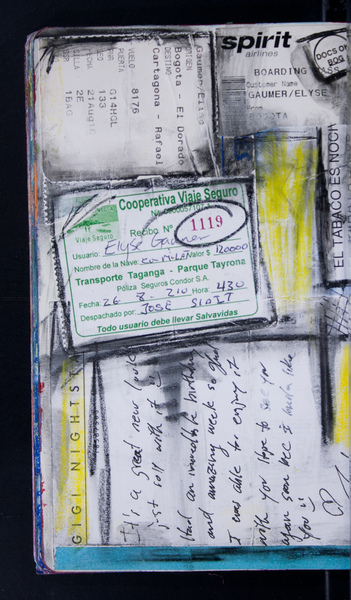 spirit
airlines
DOCS OK
BOG
BOARDING PASS
Customer Name
GAUMER/ELYSE
BOGOTA
Gaumer/Elise
ORIGEN
Bogota - El Dorado
DESTINO
Cartagena - Rafael
VUELO
8176
PUERTA
G14HGL
133
21Aug10
2E
16A
EL TABACO ES NOCI
Cooperativa Viaje Seguro
Viaje Seguro
Recibo N° 1119
Usuario: Elyse Gaumer
Nombre de la Nave: Valor $ 120000
Transporte Taganga - Parque Tayrona
Póliza Seguros Condor S.A.
Fecha: 26 8 210 Hora: 430
Despachado por: JOSÉ
Todo usuario debe llevar Salvavidas
GIGI NIGHTS
It's a great new look
just roll with it
Had an incredible birthday
and amazing week so glad
I was able to enjoy it
with you hope to see you
again soon bec I kinda like
you